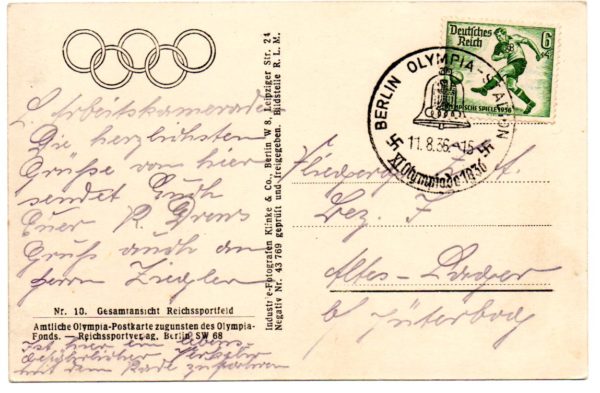 L. Arbeitskameraden
Die herzlichsten
Grüße von hier
sendet Euch
Euer R. Drews
Gruß auch an
Herrn Ziegler
Nr. 10. Gesamtansicht Reichssportfeld
Amtliche Olympia-Postkarte zugunsten des Olympia-
Fonds. — Reichssportverlag, Berlin SW 68
Ist hier ein
mit dem Rade zu fahren
Industrie-Fotografen Klinke & Co., Berlin W 8, Leipziger Str. 24
Negativ Nr. 43 769 geprüft und freigegeben. Bildstelle R. L. M.
Deutsches
Reich
6
+4
SCHE SPIELE 1936
BERLIN OLYMPIA-STADION
11.8.36.-15
XI. Olympiade 1936
Bez. F
Altes-Lager
b/ Jüterbog